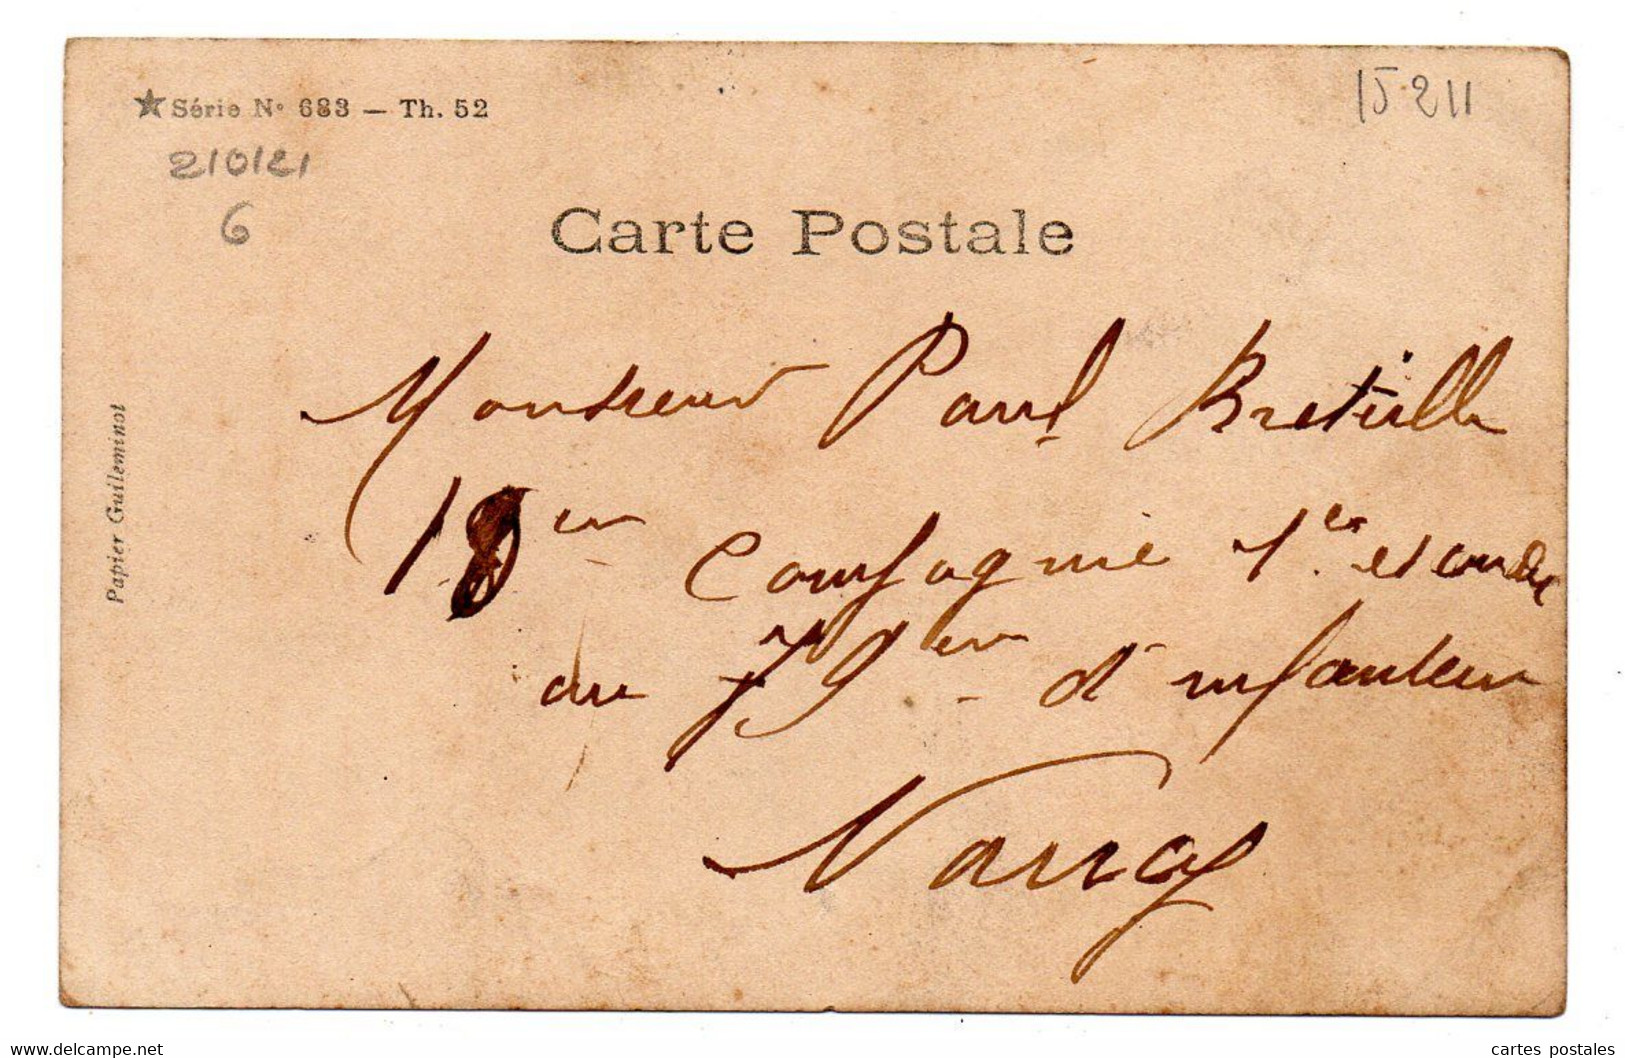 ★ Série N° 683 — Th. 52
15-211
2/0/21
6
Carte Postale
Papier Guileminot
Monsieur Paul Bretulle
18em Compagnie 1er escouade
au 79em d'infanterie
Nancy
www.delcampe.net
cartes_postales